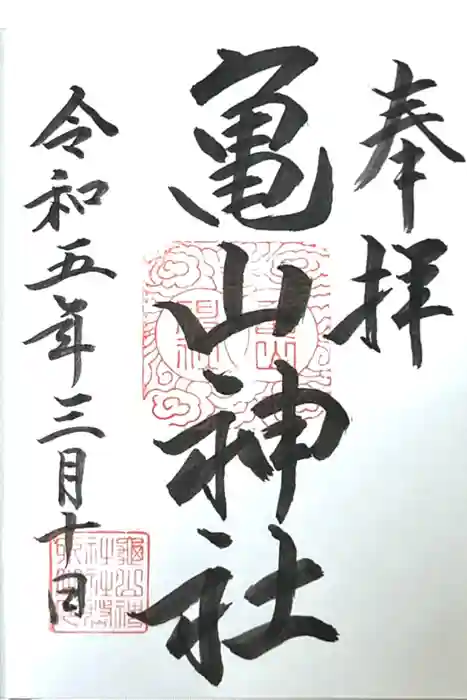 奉拝
亀山神社
令和五年三月十日